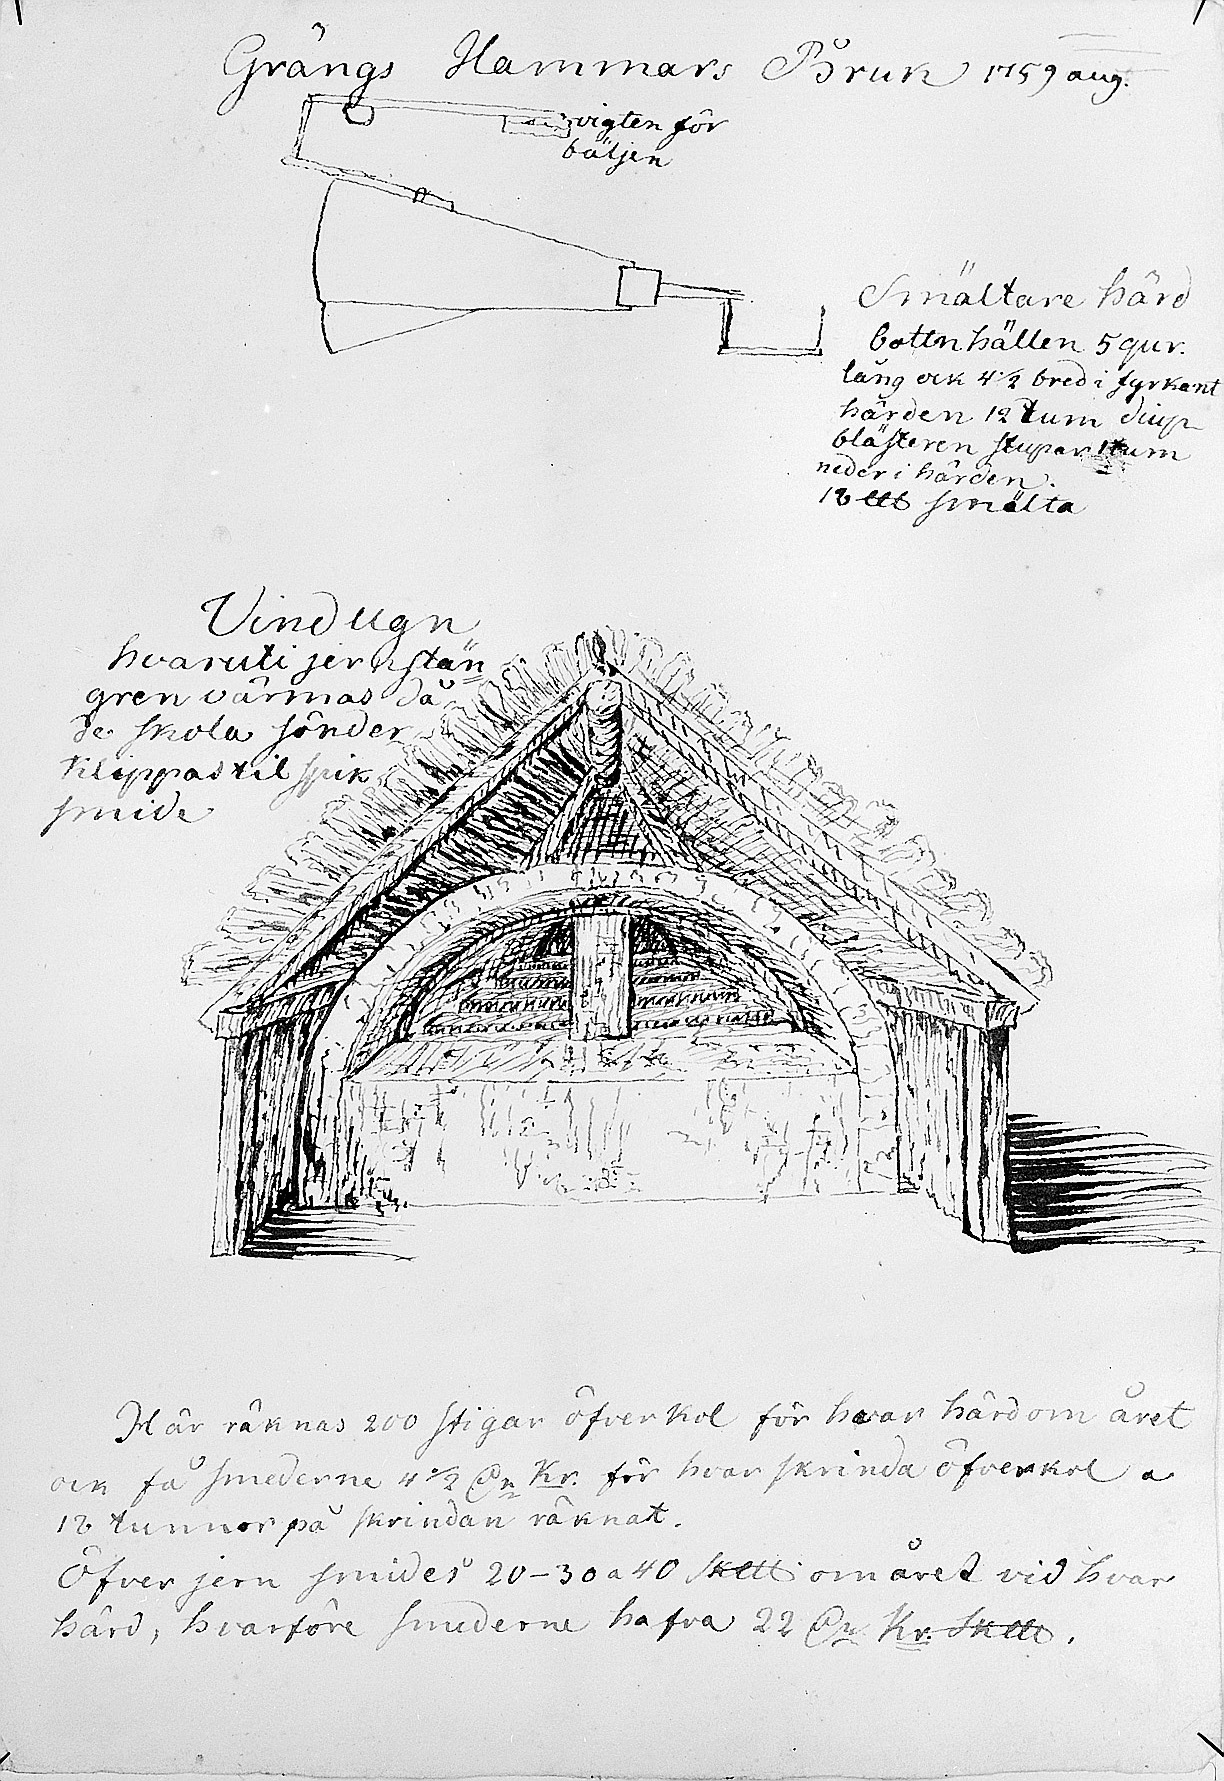 Grångs Hammars Bruk 1759 aug.
vigten för
bäljen
Smältare härd
bottnhällen 5 qur.
lång ock 4 1/2 bred i fyrkant
härden 12 tum diup
blästeren stupar 1 tum
neder i härden.
18 smälta
Vind Ugn
hvaruti jern stän
gren värmas då
de skola sönder
klippas til spik
smide
Här räknas 200 stigar öfver kol för hvar härd om året
ock få smederne 4 1/2 Kr. för hvar skrinda öfverkol a
18 tunnor på skrindan räknat.
Öfver jern smides 20-30 a 40 om året vid hvar
härd, hvarföre smederne hafva 22 Kr.